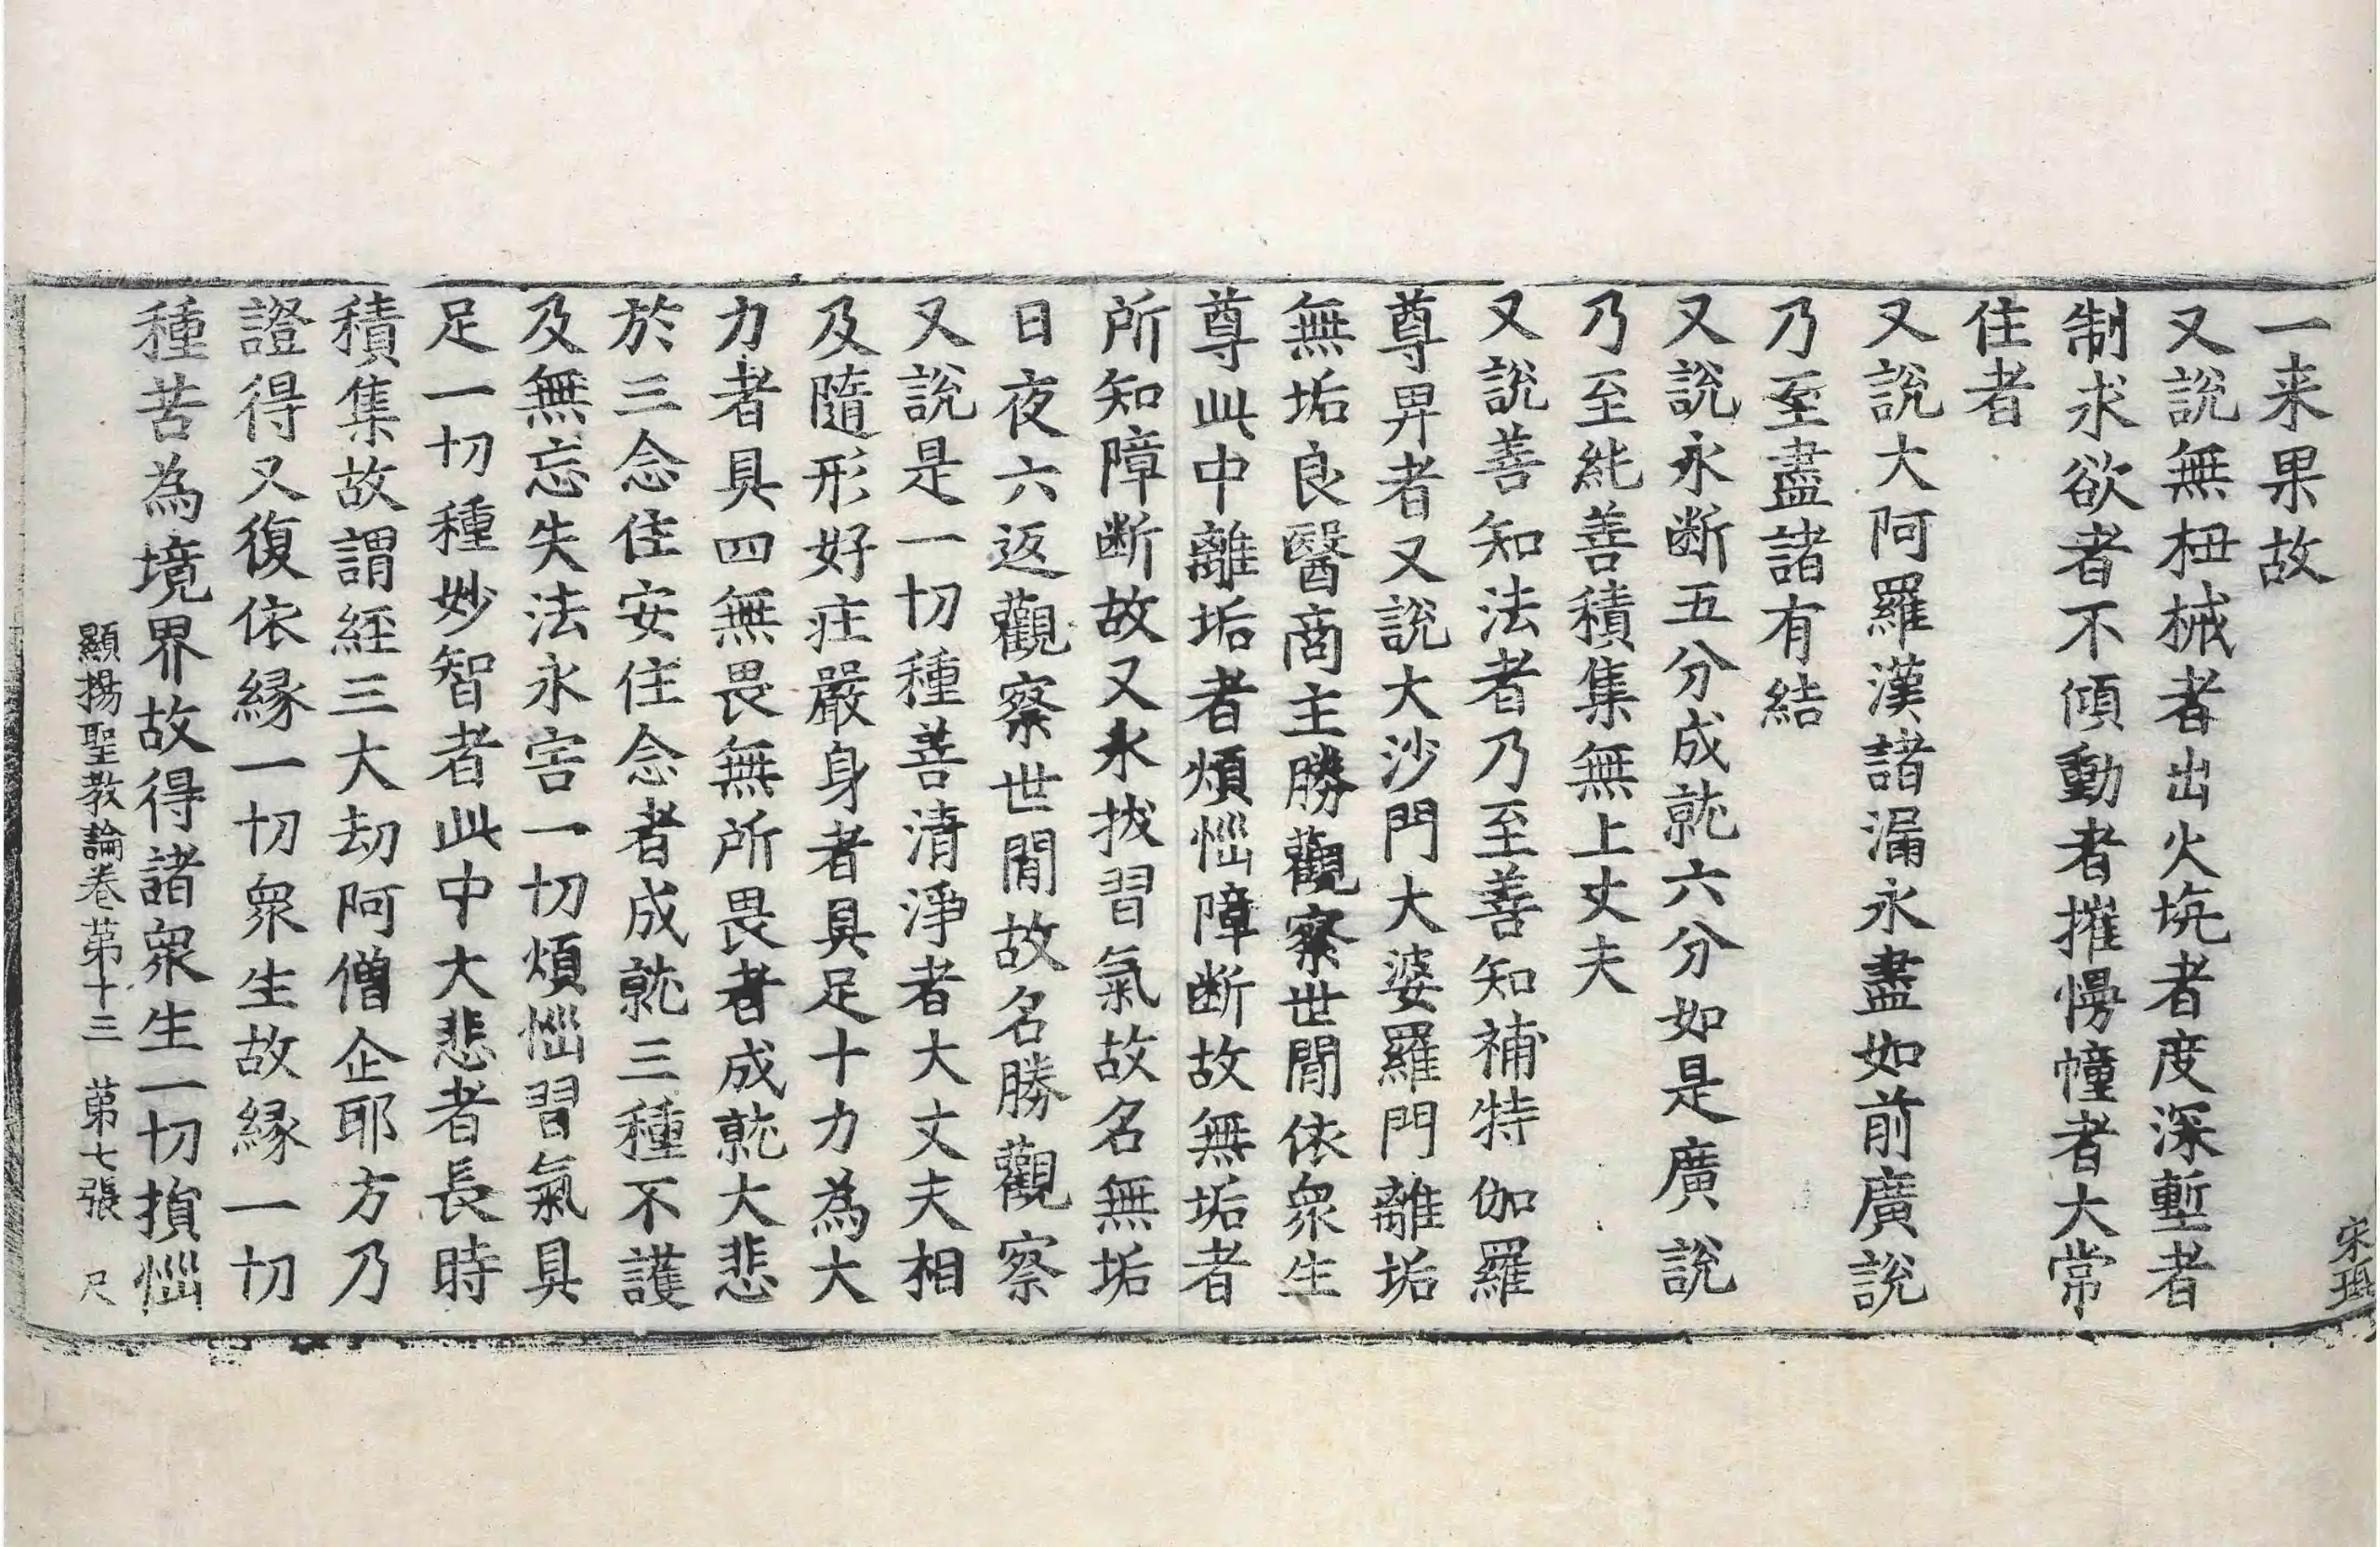 一来果故
又說無杻械者出火坑者度深塹者
制求欲者不傾動者摧慢幢者大常
住者
又說大阿羅漢諸漏永盡如前廣說
乃至盡諸有結
又說永断五分成就六分如是廣說
乃至能善積集無上丈夫
又說善知法者乃至善知補特伽羅
尊昇者又說大沙門大婆羅門離垢
無垢良醫商主勝觀察世間依衆生
尊此中離垢者煩惱障断故無垢者
所知障断故又永拔習氣故名無垢
日夜六返觀察世間故名勝觀察
又說是一切種善清淨者大丈夫相
及隨形好莊嚴身者具足十力為大
力者具四無畏無所畏者成就大悲
於三念住安住念者成就三種不護
及無忘失法永害一切煩惱習氣具
足一切種妙智者此中大悲者長時
積集故謂経三大劫阿僧企耶方乃
證得又復依縁一切衆生故縁一切
種苦為境界故得諸衆生一切損惱
顯揚聖教論卷第十三　第七張　尺
宋珢